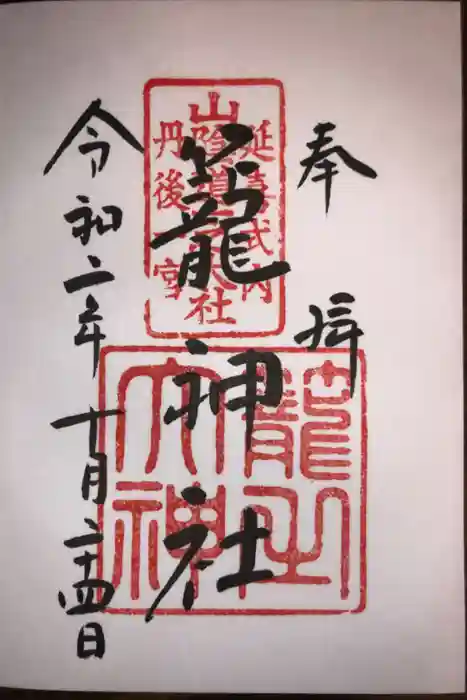 奉拝
籠神社
令和二年十月二十四日
延喜式内
山陰道大社
丹後一宮
籠之
大神